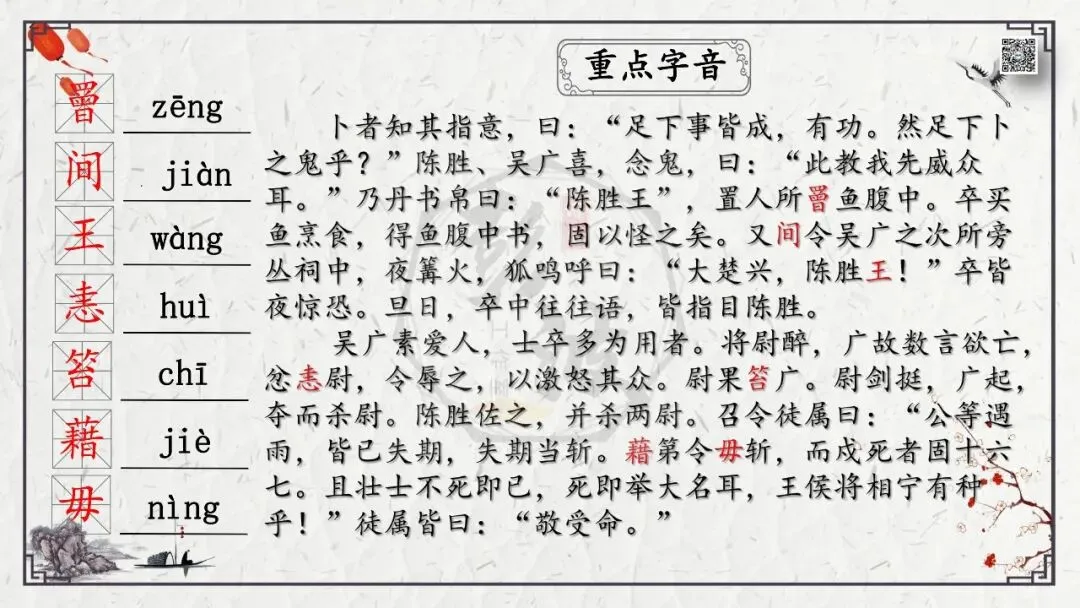 重点字音
罾 zēng
间 jiàn
王 wàng
恚 huì
笞 chī
藉 jiè
毋 nìng
卜者知其指意，曰：“足下事皆成，有功。然足下卜
之鬼乎？”陈胜、吴广喜，念鬼，曰：“此教我先威众
耳。”乃丹书帛曰：“陈胜王”，置人所罾鱼腹中。卒买
鱼烹食，得鱼腹中书，固以怪之矣。又间令吴广之次所旁
丛祠中，夜篝火，狐鸣呼曰：“大楚兴，陈胜王！”卒皆
夜惊恐。旦日，卒中往往语，皆指目陈胜。
吴广素爱人，士卒多为用者。将尉醉，广故数言欲亡，
忿恚尉，令辱之，以激怒其众。尉果笞广。尉剑挺，广起，
夺而杀尉。陈胜佐之，并杀两尉。召令徒属曰：“公等遇
雨，皆已失期，失期当斩。藉第令毋斩，而戍死者固十六
七。且壮士不死即已，死即举大名耳，王侯将相宁有种
乎！”徒属皆曰：“敬受命。”